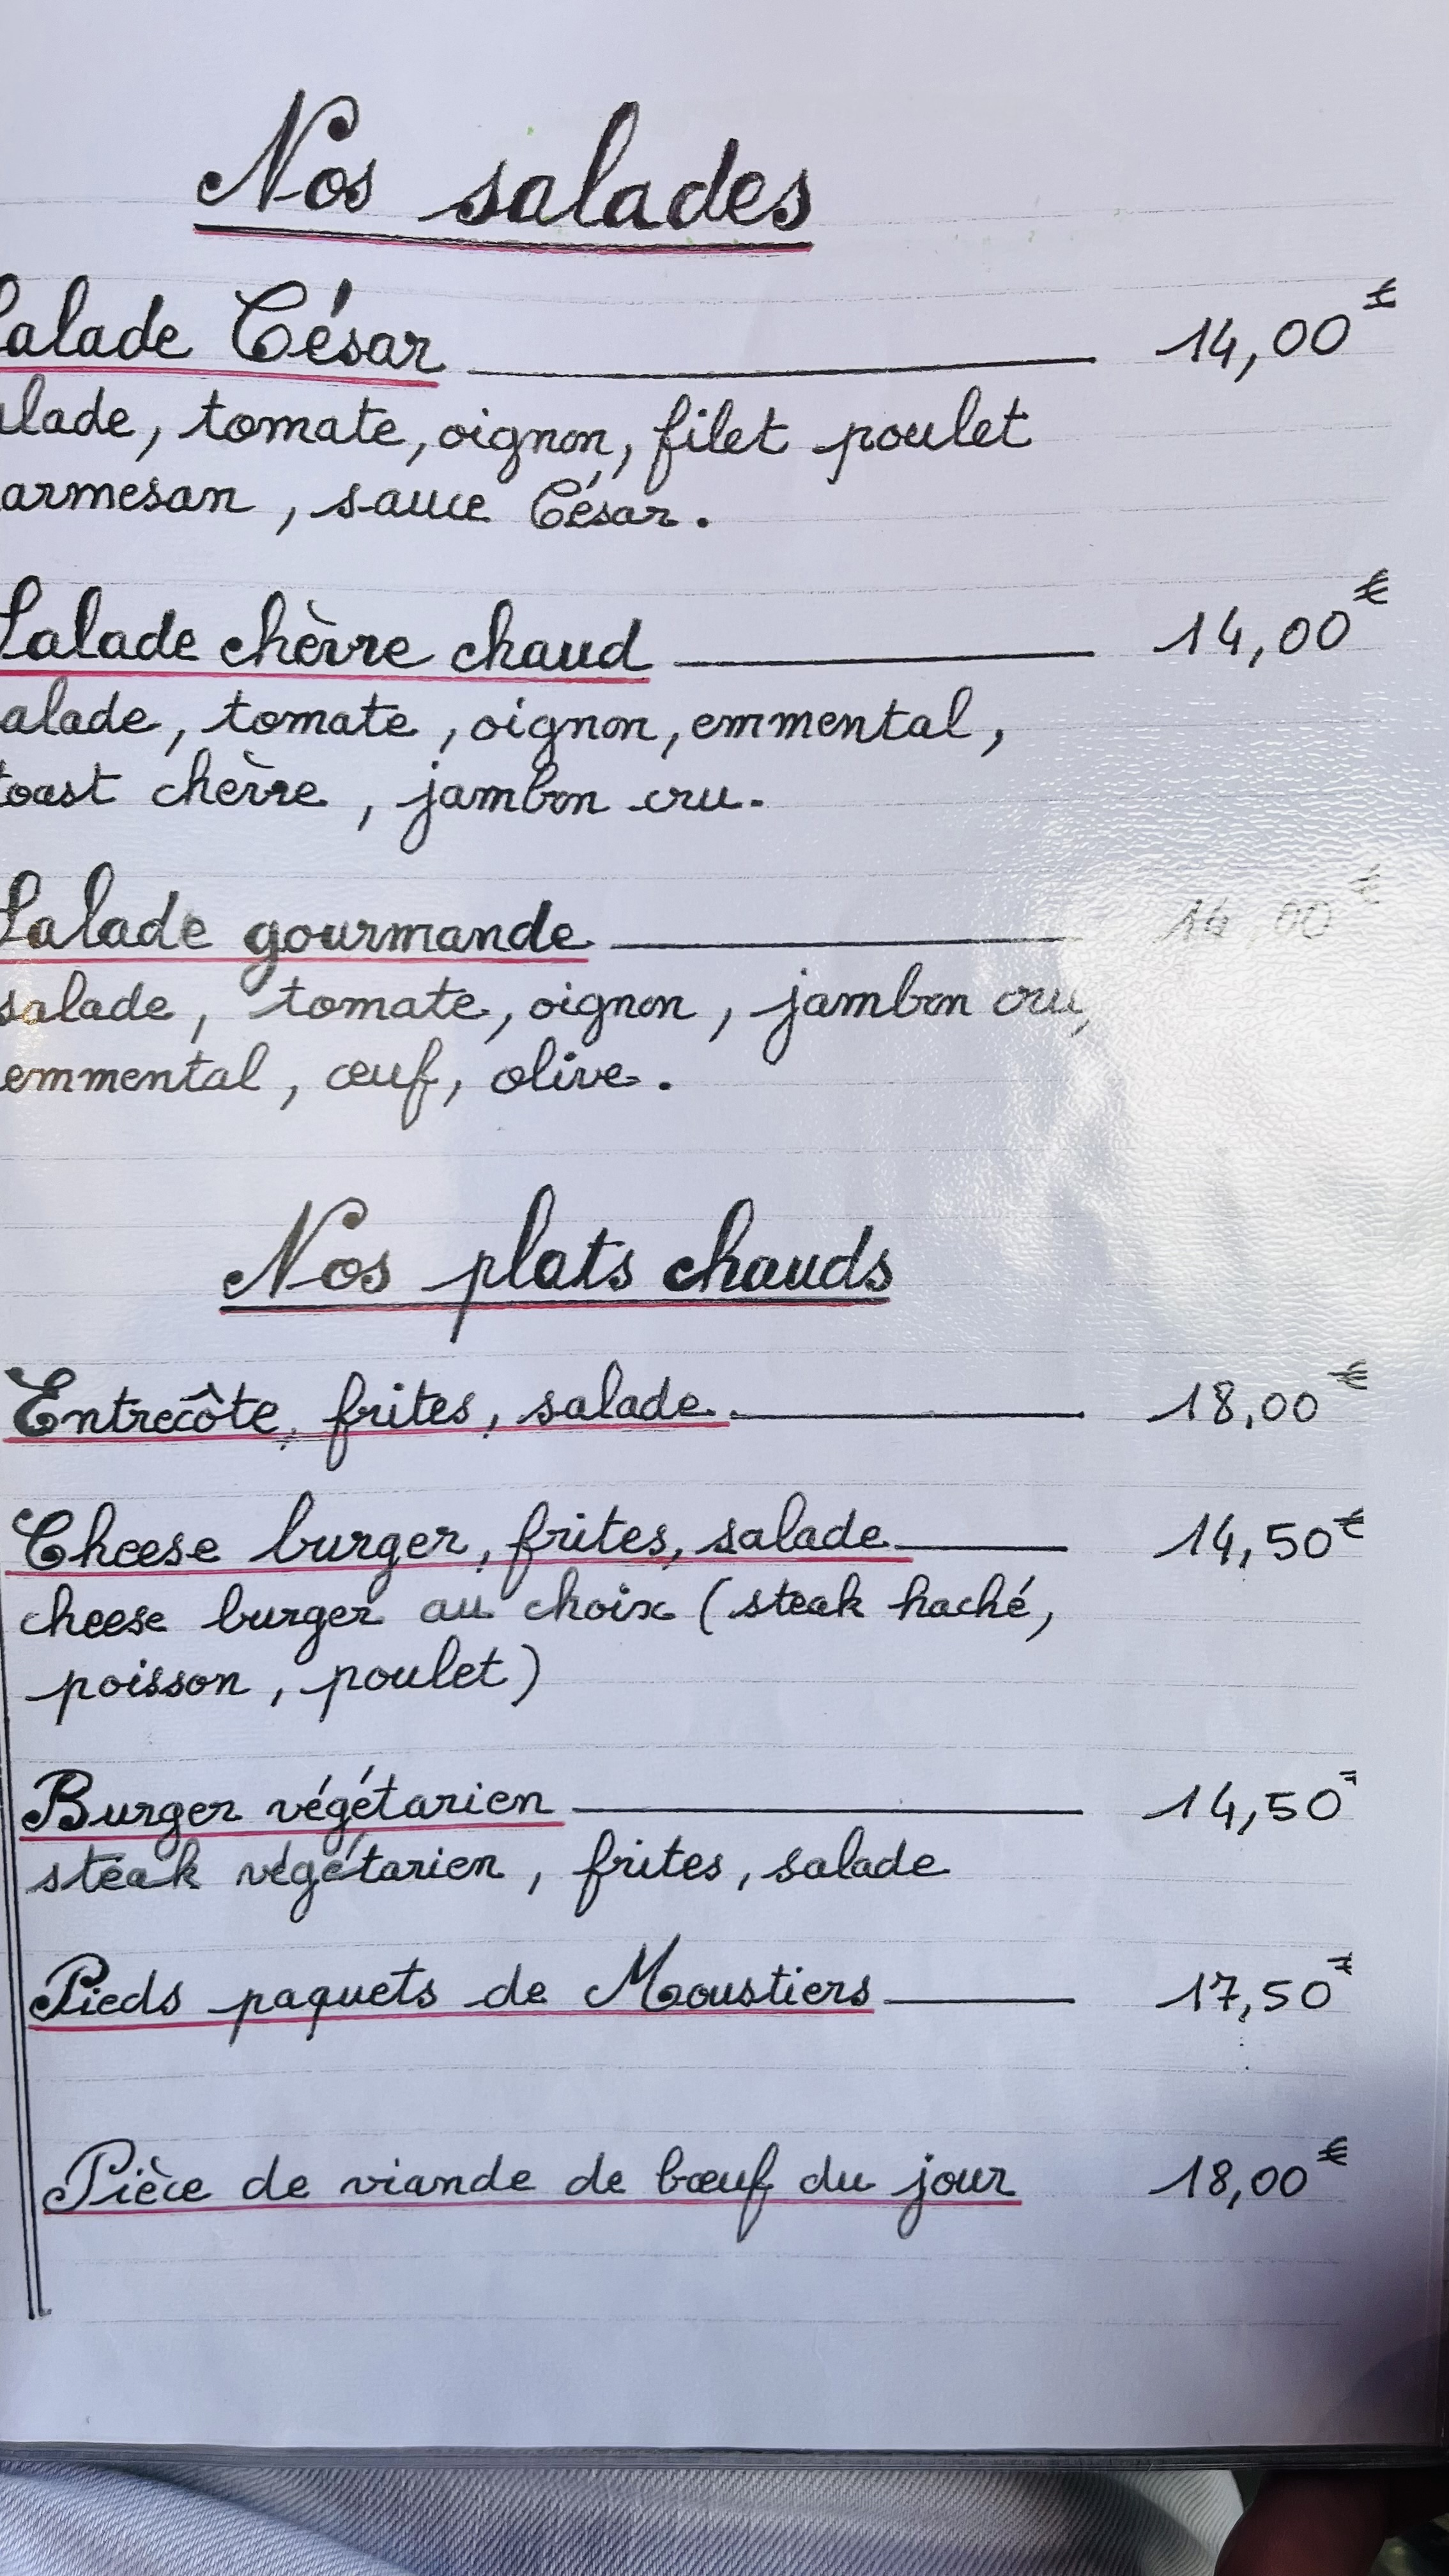 Nos salades
Salade César 14,00€
salade, tomate, oignon, filet poulet
parmesan, sauce César.
Salade chèvre chaud 14,00€
salade, tomate, oignon, emmental,
toast chèvre, jambon cru.
Salade gourmande 14,00€
salade, tomate, oignon, jambon cru,
emmental, œuf, olive.
Nos plats chauds
Entrecôte, frites, salade 18,00€
Cheese burger, frites, salade 14,50€
cheese burger au choix (steak haché,
poisson, poulet)
Burger végétarien 14,50€
steak végétarien, frites, salade
Pieds paquets de Moustiers 17,50€
Pièce de viande de bœuf du jour 18,00€